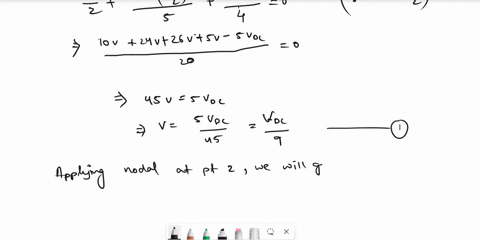 /2 + (-2)/5 + /4 = 0 ( 2 )
⇒ (10V + 24V + 26V + 5V - 5V_DC)/20 = 0
⇒ 45V = 5V_DC
⇒ V = 5V_DC/45 = V_DC/9 ——— ①
Applying nodal at pt 2, we will g